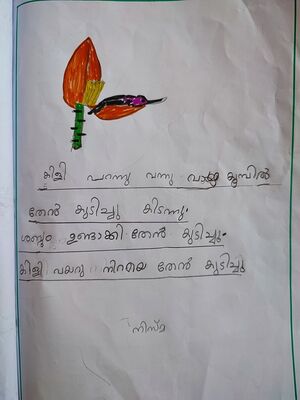 കിളി പറന്നു വന്നു വാഴ കൂമ്പിൽ
തേൻ കുടിച്ചു കിടന്നു.
ശബ്ദം ഉണ്ടാക്കി തേൻ കുടിച്ചു.
കിളി വയറു നിറയെ തേൻ കുടിച്ചു
നിസ്മ